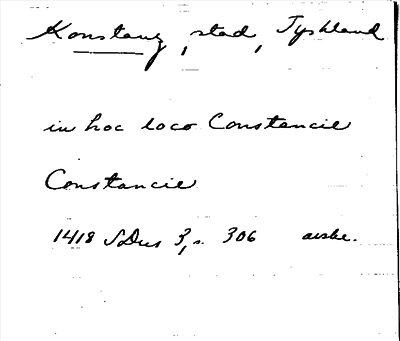 Konstanz, stad, Tyskland
in hoc loco Constancie
Constancie
1418 SDns 3, s. 306 avskr.